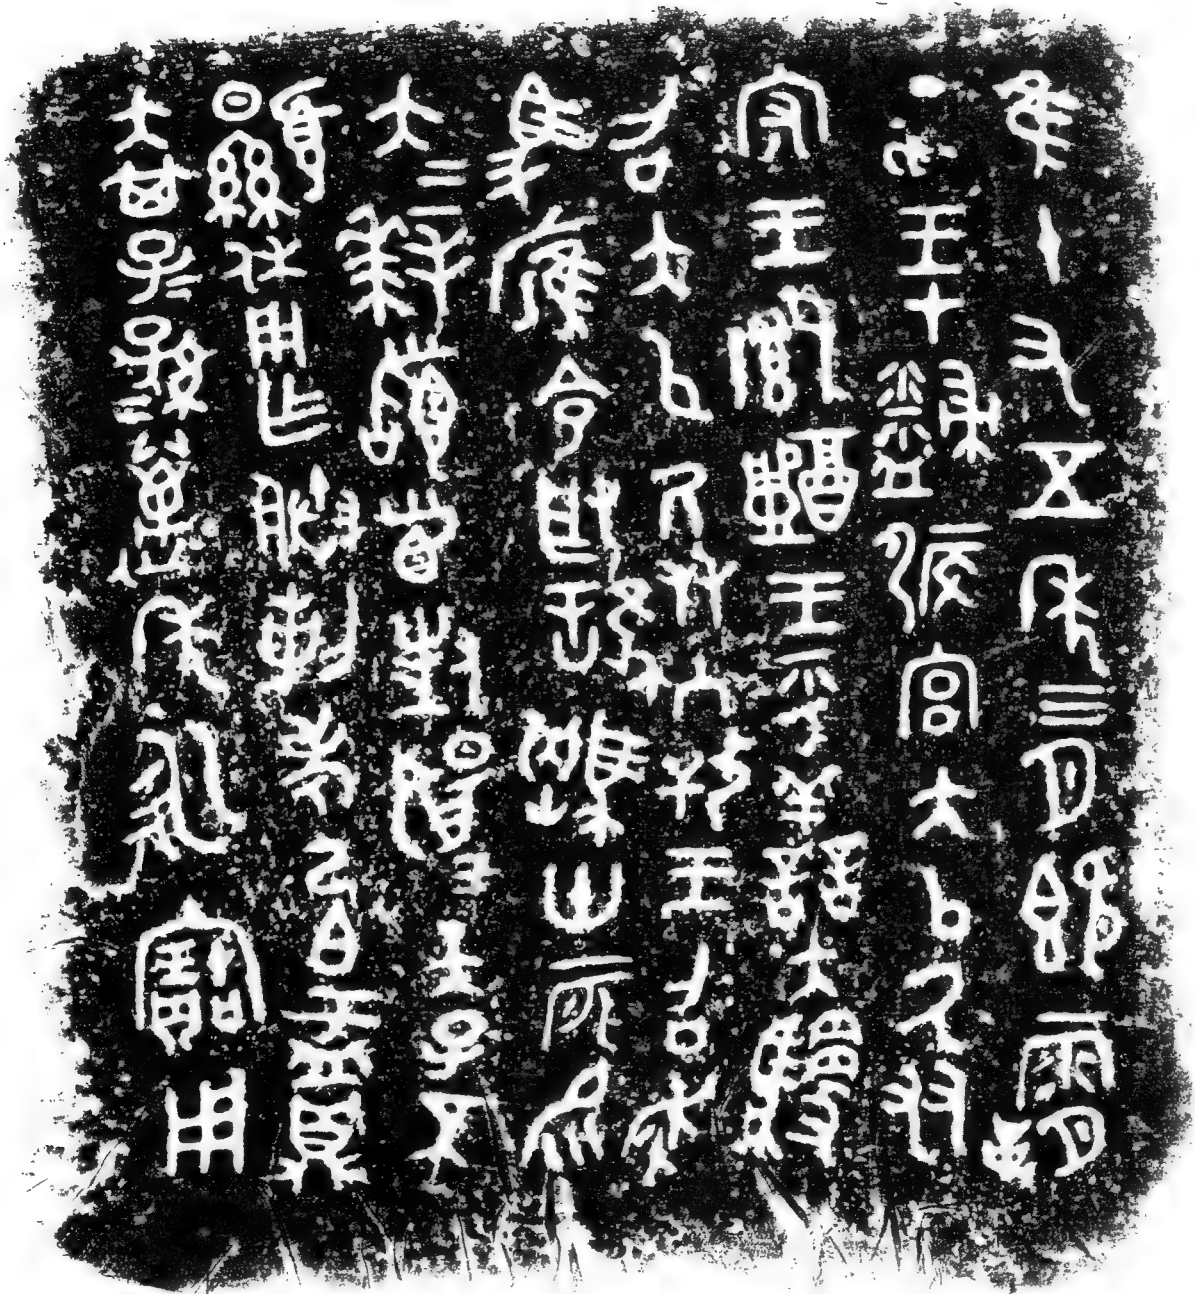 隹十又五年三月既霸丁
亥王才侲宮大以氒友
守王鄉醴王乎善大騕
召大以氒友入攼王召走
馬雁令取卅二匹易
大=拜𩒨首對揚天子不
顯休用乍朕剌考己白盂鼎
大其子=孫=萬年永寶用